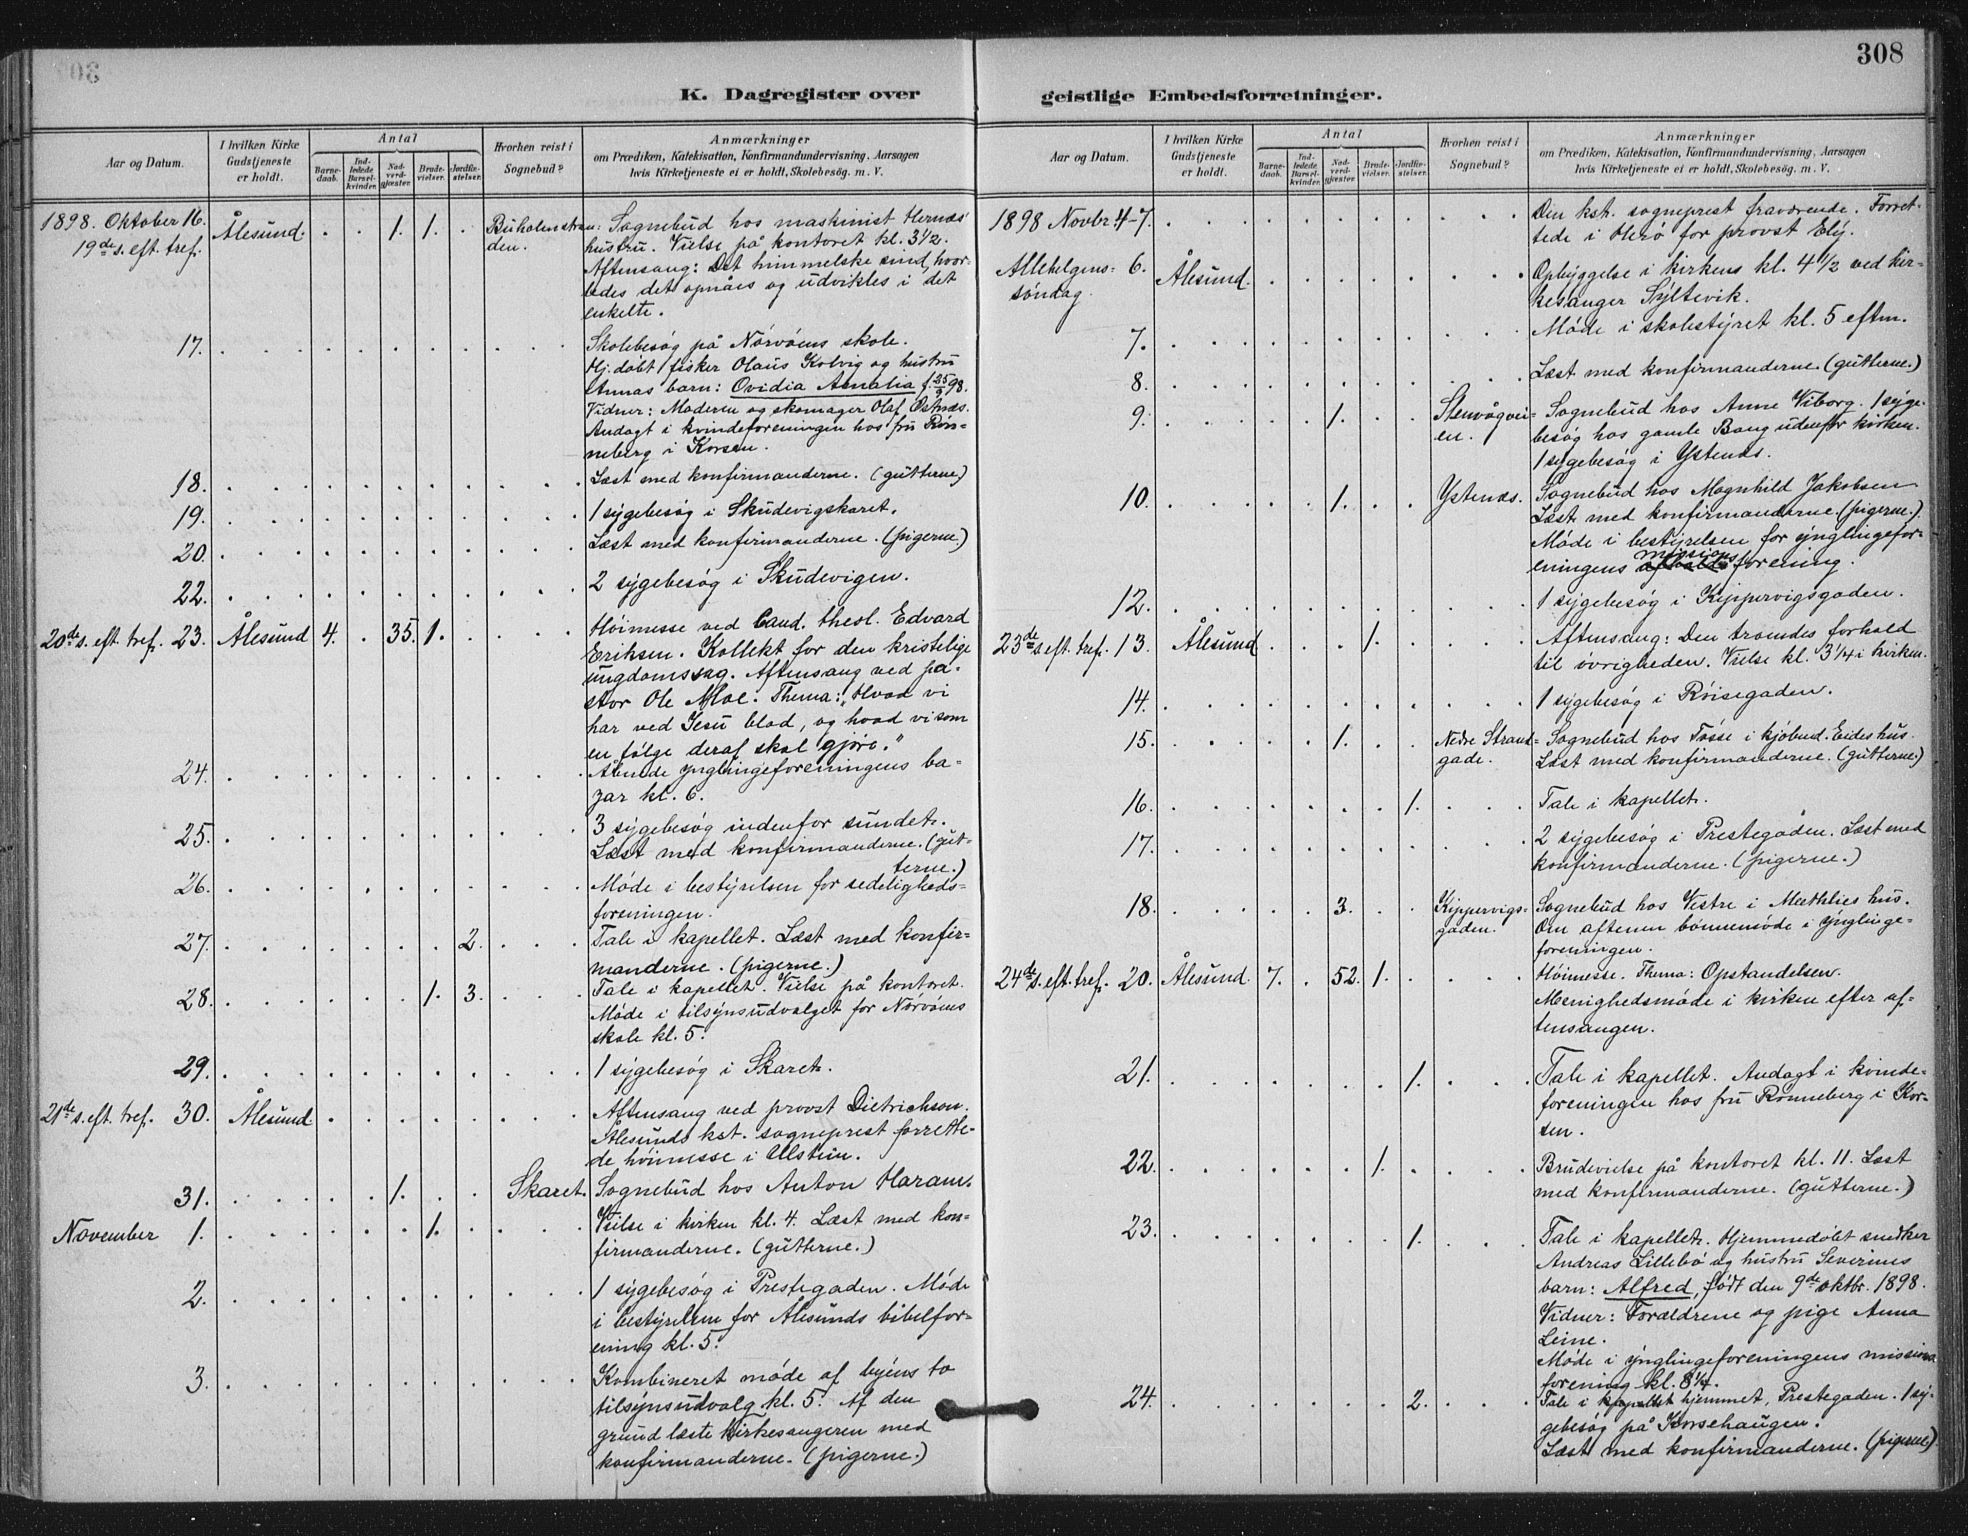 308
K. Dagregister over
geistlige Embedsforretninger.
Aar og Datum.
I hvilken Kirke Gudstjeneste er holdt.
Antal
Barnedaab.
Indledede Barselkvinder.
Nadverdgjæster.
Brudevielser.
Jordfæstelser.
Hvorhen reist i Sognebud?
Anmærkninger
om Prædiken, Katekisation, Konfirmandundervisning, Aarsagen
hvis Kirketjeneste ei er holdt, Skolebesøg. m. V.
1898. Oktober 16. Ålesund 1. 1. Buholmstran- Sognebud hos maskinist Hernæs'
19de s. eft. tref. den. hustru. Vielse på kontoret kl. 3½.
Aftensang: Det himmelske sind, hvor-
ledes det opnåes og udvikles i det
enkelte.
17. Skolebesøg på Nørvøens skole.
Hj. døbt fisker Olaus Kolvig og hustru
Annas barn: Ovidia Amalia f. 25/9 98.
Vidner: Moderen og skomager Olaf Østnæs.
Andagt i kvindeforeningen hos fru Røn-
neberg i Korsen.
18. Læst med konfirmanderne. (gutterne)
19. 1 sygebesøg i Skudevigskaret.
20. Læst med konfirmanderne. (pigerne)
22. 2 sygebesøg i Skudevigen.
20de s. eft. tref. 23. Ålesund 4. 35. 1. Høimesse ved Cand. theol. Edvard
Eriksen. Kollekt for den kristelige
ungdomssag. Aftensang ved pa-
stor Ole Moe. Thema: "Hvad vi
har ved Jesu blod, og hvad vi som
en følge deraf skal gjøre."
24. Åbnede ynglingeforeningens ba-
zar kl. 6.
25. 3 sygebesøg indenfor sundet.
Læst med konfirmanderne. (gut-
terne.)
26. Møde i bestyrelsen for sedeligheds-
foreningen.
27. 2. Tale i kapellet. Læst med konfir-
manderne. (pigerne.)
28. 1. 3. Tale i kapellet. Vielse på kontoret.
Møde i tilsynsudvalget for Nørvøens
skole kl. 5.
29. 1 sygebesøg i Skaret.
21de s. eft. tref. 30. Ålesund Aftensang ved provst Dietrichson.
Ålesunds kst. sogneprest forrette-
de høimesse i Ulstein.
31. 1. Skaret. Sognebud hos Anton Haram.
November 1. 1. Vielse i kirken kl. 4. Læst med kon-
firmanderne. (gutterne.)
2. 1 sygebesøg i Prestegaden. Møde
i bestyrelsen for Ålesunds bibelfor-
ening kl. 5.
3. Kombineret møde af byens to
tilsynsudvalg kl. 5. Af den
grund læste kirkesangeren med
konfirmanderne. (pigerne.)
Aar og Datum.
I hvilken Kirke Gudstjeneste er holdt.
Antal
Barnedaab.
Indledede Barselkvinder.
Nadverdgjæster.
Brudevielser.
Jordfæstelser.
Hvorhen reist i Sognebud?
Anmærkninger
om Prædiken, Katekisation, Konfirmandundervisning, Aarsagen
hvis Kirketjeneste ei er holdt, Skolebesøg. m. V.
1898 Novbr. 4-7. Den kst. sogneprest fraværende. Forret-
tede i Herø for provst Ely.
Allehelgens- 6. Ålesund. Opbyggelse i kirkens kl. 4½ ved kir-
søndag. kesanger Syltevik.
7. Møde i skolestyret kl. 5 eftm.
8. Læst med konfirmanderne. (gutterne.)
9. 1. Stenvågvei- Sognebud hos Anne Viborg. 1 syge-
en. besøg hos gamle Bang udenfor kirken.
1 sygebesøg i Ystenæs.
10. 1. Ystenæs. Sognebud hos Magnhild Jakobsen
Læst med konfirmanderne. (pigerne.)
Møde i bestyrelsen for ynglingefor-
eningens missionsforening.
12. 1 sygebesøg i Kippervigsgaden.
23de s. eft. tref. 13. Ålesund 1. Aftensang: Den troendes forhold
til øvrigheden. Vielse kl. 3¼ i kirken.
14. 1 sygebesøg i Røisegaden.
15. 1. Nedre Strand- Sognebud hos Tøsse i kjøbmd. Eides hus.
gade. Læst med konfirmanderne. (gutterne.)
16. 1. Tale i kapellet.
17. 2 sygebesøg i Prestegaden. Læst med
konfirmanderne. (pigerne.)
18. 3. Kippervigs- Sognebud hos Vestre i hus.
gaden. Om aftenen bønnemøde i ynglinge-
foreningen.
24de s. eft. tref. 20. Ålesund 7. 52. 1. Høimesse. Thema: Opstandelsen.
Menighedsmøde i kirken efter af-
tensangen.
21. 1. Tale i kapellet. Andagt i kvinde-
foreningen hos fru Rønneberg i Kor-
sen.
22. 1. Brudevielse på kontoret kl. 11. Læst
med konfirmanderne. (gutterne.)
23. 1. Tale i kapellet. Hjemmedøbt snedker
Andreas Lillebø og hustru Severines
barn: Alfred, født den 9de oktbr. 1898.
Vidner: Forældrene og pige Anna
Leine.
Møde i ynglingeforeningens missions
forening kl. 8¼.
24. 2. Tale i kapellet hjemmet, Prestegaden. 1 sy-
gebesøg på Korsehaugen.
Læst med konfirmanderne. (pigerne)